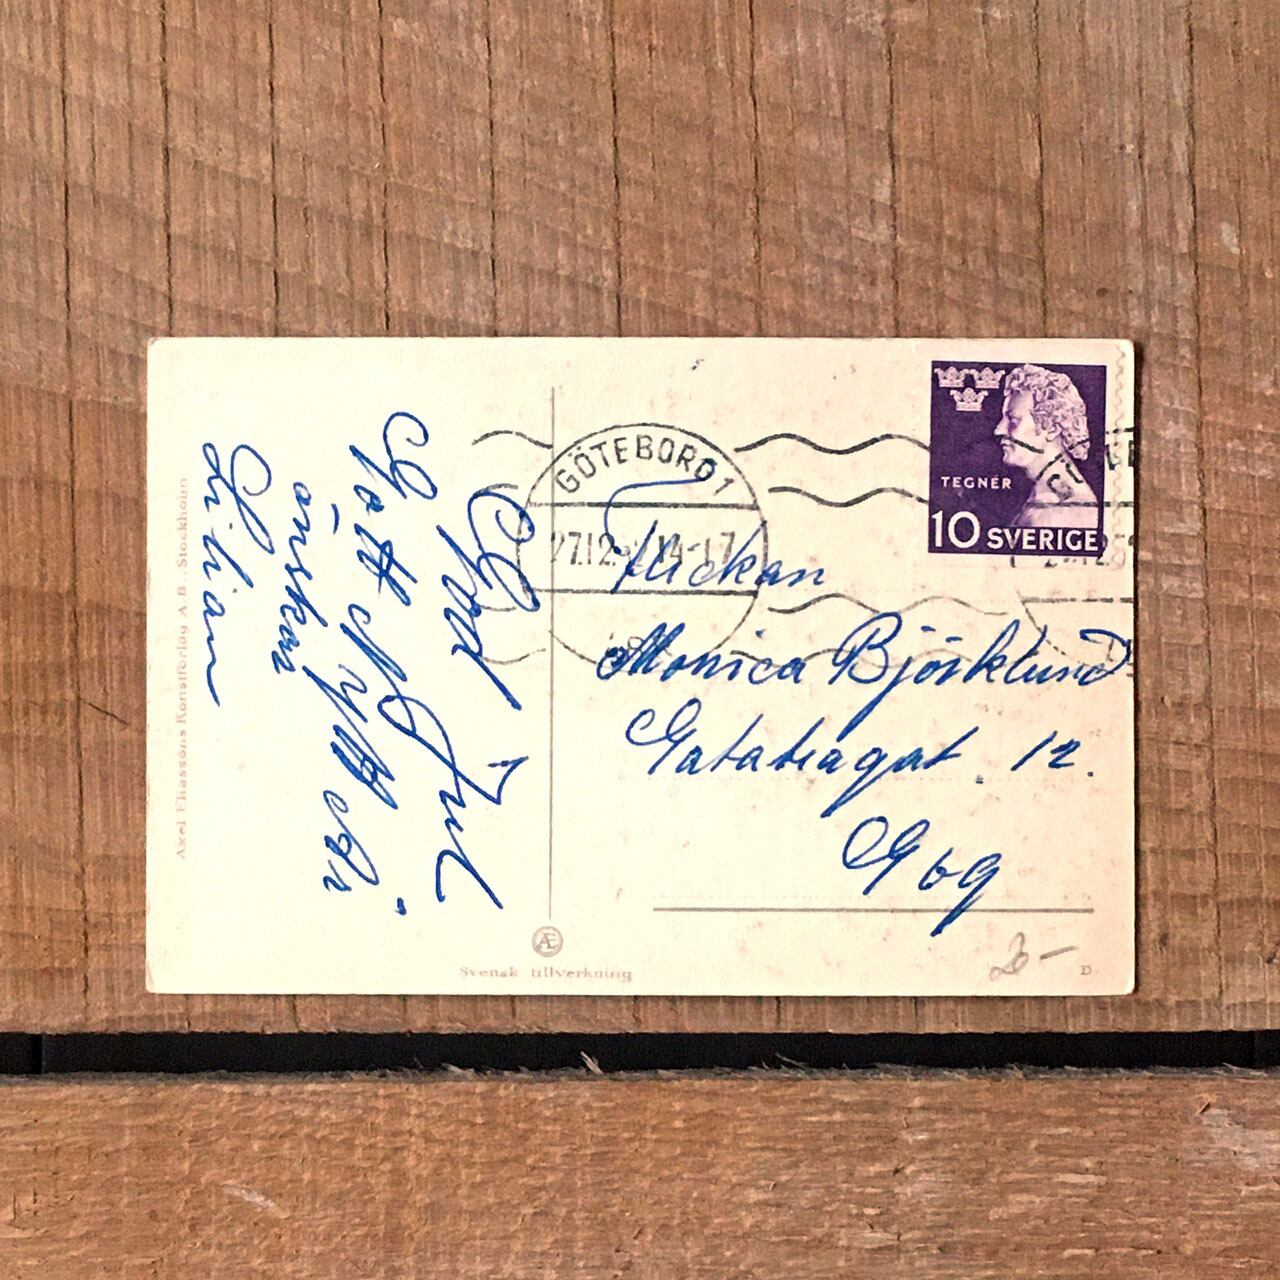 God Jul
Gott Nytt År
önskar
Lilian
Flickan
Monica Björklund
12.
Gbg
GÖTEBORG 1
27.12. 14-17
TEGNÉR
10 SVERIGE
Axel Eliassons Konstförlag A.B. Stockholm
Æ
Svensk tillverkning
D